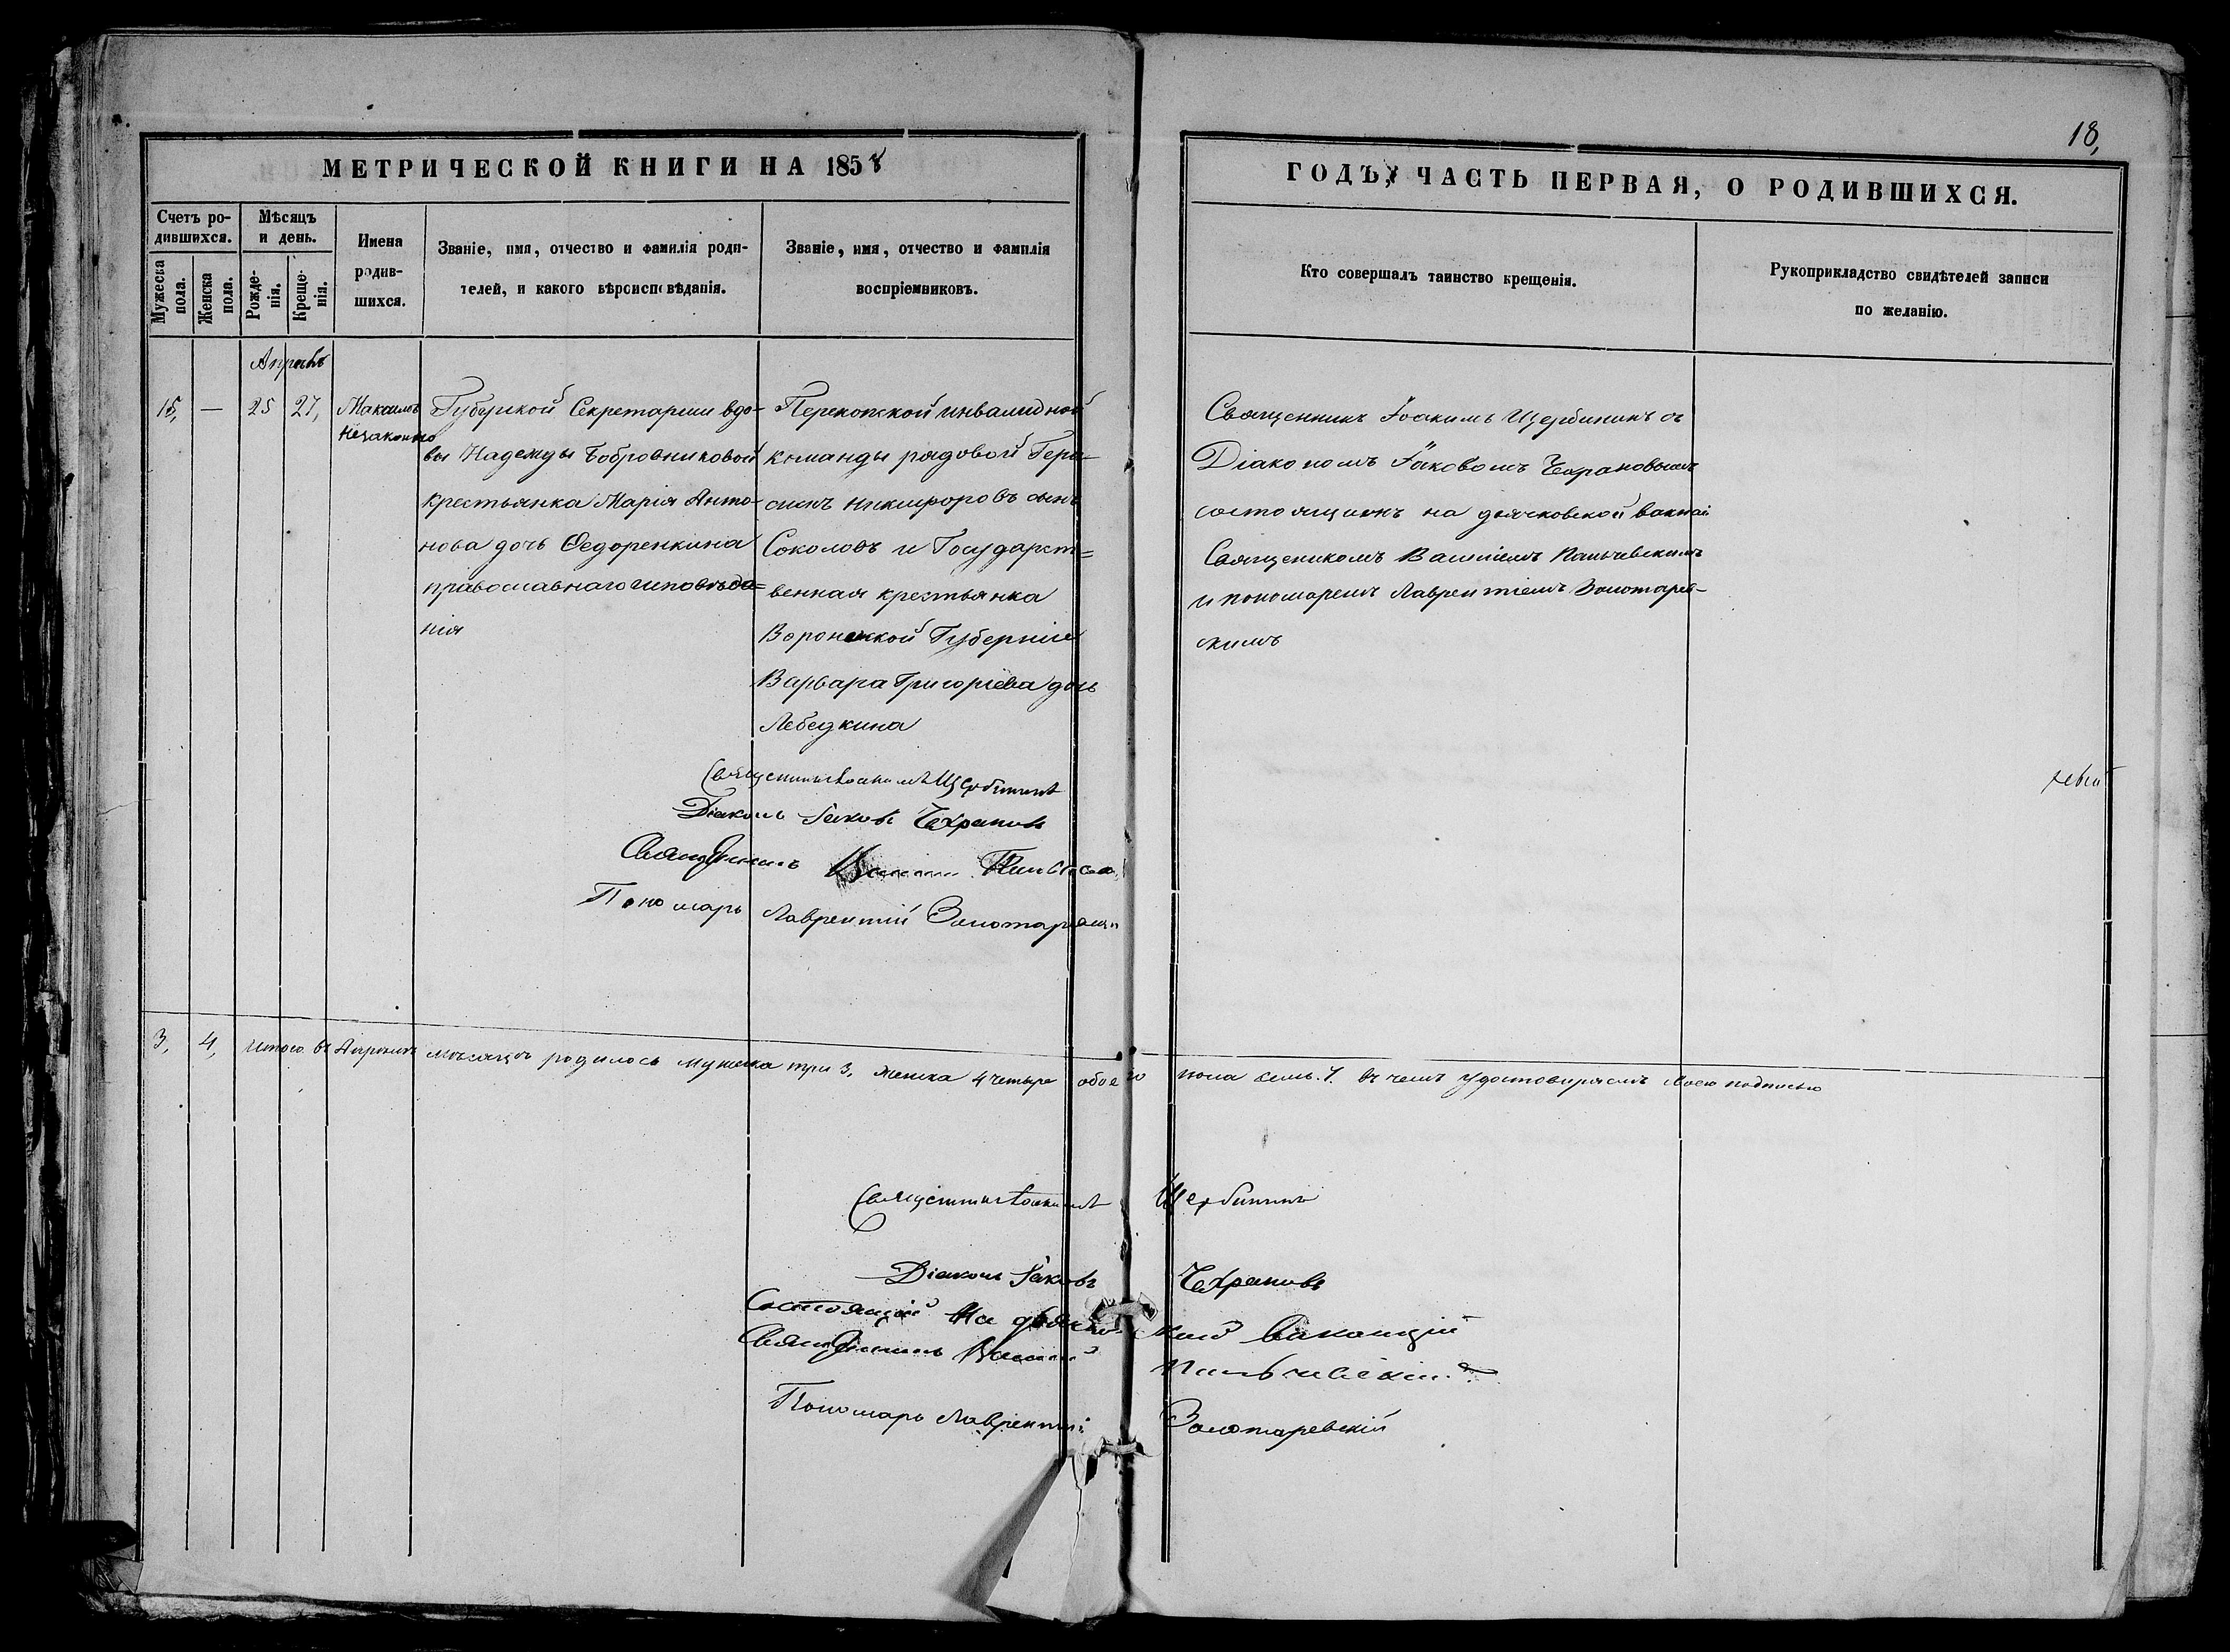 18,
МЕТРИЧЕСКОЙ КНИГИ НА 1858
ГОДЪ, ЧАСТЬ ПЕРВАЯ, О РОДИВШИХСЯ.
Счетъ ро-
дившихся.
Мужеска
пола.
Женска
пола.
Мѣсяцъ
и день.
Рожде-
нія.
Креще-
нія.
Имена
родив-
шихся.
Званіе, имя, отчество и фамилія роди-
телей, и какого вѣроисповѣданія.
Званіе, имя, отчество и фамилія
воспріемниковъ.
Кто совершалъ таинство крещенія.
Рукоприкладство свидѣтелей записи
по желанію.
Апрѣль
15, — 25 27,
незаконно
Секретарши вдо-
вы Надежды Бобровниковой
крестьянка Марія Анто-
нова дочь Ѳедоренкина
православнаго исповѣда=
нія
Перекопской инвалидной
команды рядовой Гера-
симъ Никифоровъ сынъ
Соколовъ и Государст=
венная крестьянка
Воронежской Губерніи
Варвара Григорьева дочь
Лебедкина
Священникъ Іоакимъ Щербининъ съ
Діакономъ Іаковомъ
состоящимъ на дьячковской
Священикомъ Василіемъ
и пономаремъ Лаврентіемъ Золотарев-
скимъ
Священникъ Іоакимъ Щербининъ
Діаконъ Іаковъ
Священникъ
Пономарь Лаврентій
3, 4, Итого въ Апрѣлѣ мѣсяцѣ родилось мужеска три 3, женска 4 четыре обоего пола семь. 7. въ чемъ удостовѣряемъ подписью
Священникъ Іоакимъ Щербининъ
Діаконъ Іаковъ
Состоящій на
Священникъ Василій
Пономарь Лаврентій Золотаревскій